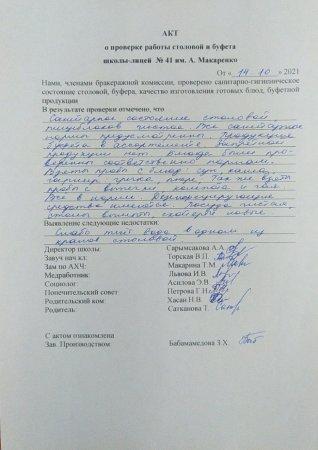 АКТ
о проверке работы столовой и буфета
школы-лицей № 41 им. А. Макаренко
От « 14 » 10 » 2021
Нами, членами бракеражной комиссии, проверено санитарно-гигиеническое
состояние столовой, буфера, качество изготовления готовых блюд, буфетной
продукции
В результате проверки отмечено, что
Санитарное состояние столовой
пищеблоков чистое. Все санитарные
нормы предусмотрены. Продукция
буфета в ассортименте запретной
продукции нет. Блюда были про-
верены соответственно нормам.
Взяты пробы с блюд: суп, каша,
гарнир гречка, пюре. Так же взяты
пробы с компота и чая
Все в норме. Дезинфицирующие
средства имеются. Посуда чистая
столы вымыты, скатерти новые
Выявление следующие недостатки:
Слабо течёт вода в одном из
кранов столовой
Директор школы: Сарымсакова А.А
Завуч нач кл: Торская В.П.
Зам по АХЧ: Макарина Т.М.
Медработник: Львова И.В.
Социолог Асилова Э.В.
Попечительский совет Петрова Г.Н.
Родительский ком: Хасан Н.В.
Родитель: Сатканова Т.
С актом ознакомлена
Зав. Производством Бабамамедова З.Х.